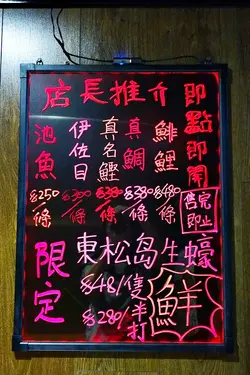 店長推介
即點即開
池魚
$250/條
伊佐目
真名鰹
真鯛
/條
鯡鯉
/條
售完即止
限定
東松島生蠔
$48/隻
$280/半打
鮮